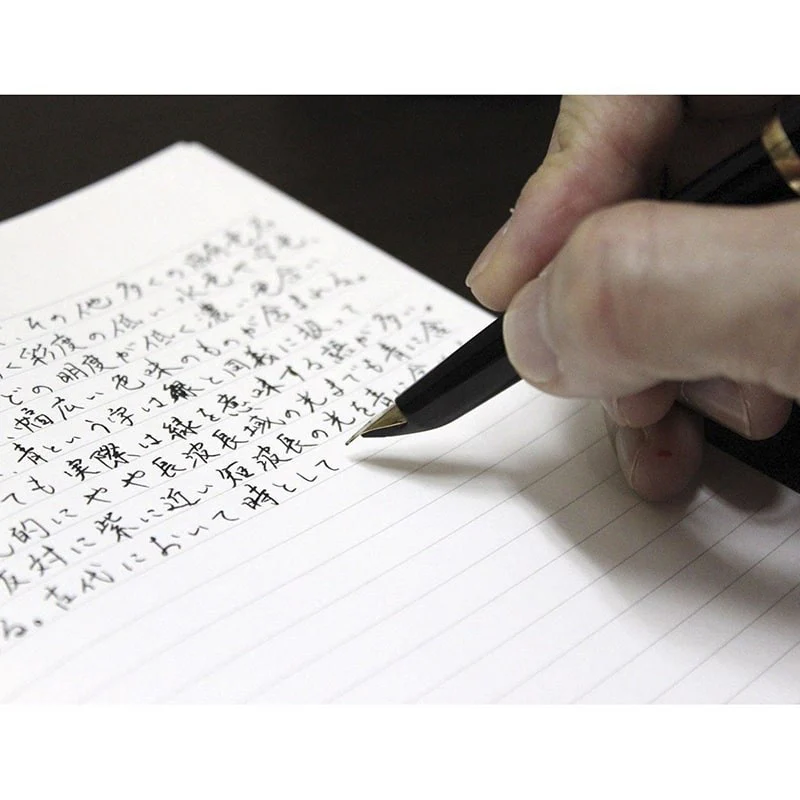 その他多くの
く彩度の低い水色や空色、
どの明度が低く濃い色合い
幅広い色味のものが含まれる。
青という字は緑と同義に扱って
ても実際は緑を意味する語が多い。
的にやや長波長域の光までも青に含
反対に紫に近い短波長の光を青に含
る。古代において時として